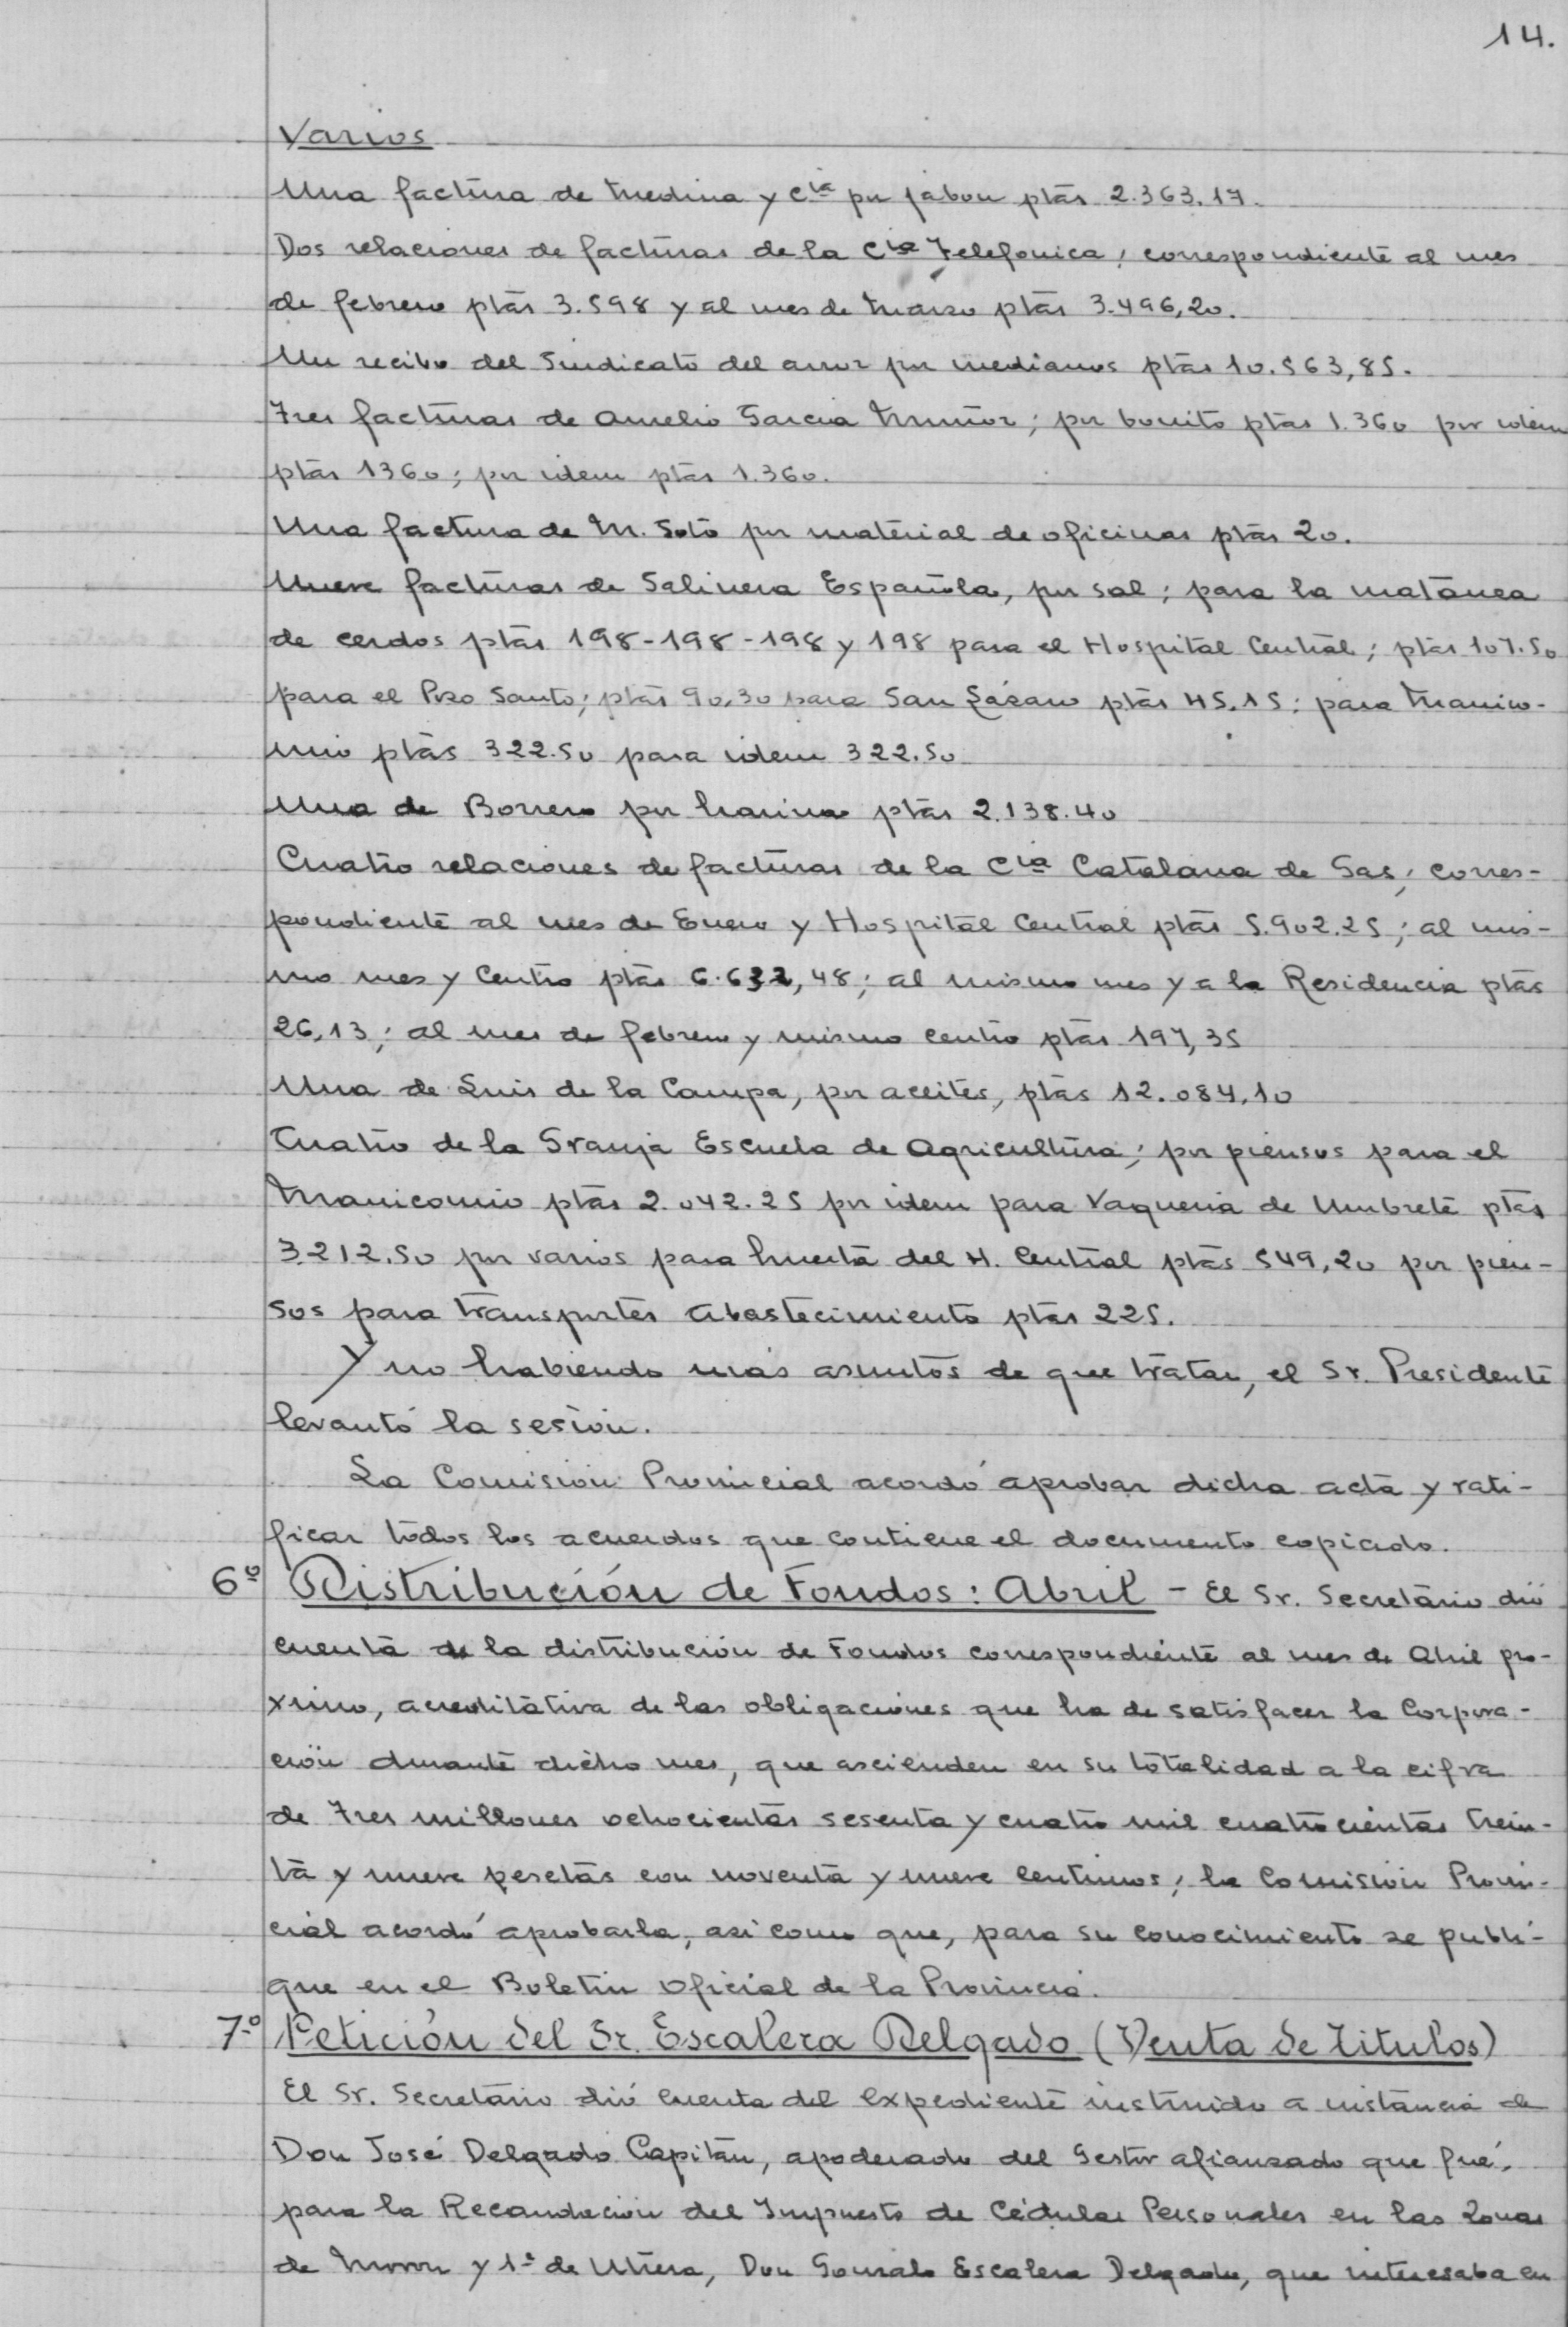 14.
Varios
Una factura de Medina y Cia por jabon ptas 2.363.17.
Dos relaciones de facturas de la Cia Telefonica; correspondiente al mes
de febrero ptas 3.598 y al mes de Marzo ptas 3.496,20.
Un recibo del Sindicato del arroz por medianos ptas 10.563,85.
Tres facturas de Aurelio Garcia Muñoz; por bonito ptas 1.360 por idem
ptas 1360; por idem ptas 1.360.
Una factura de M. Soto por material de oficinas ptas 20.
Nueve facturas de Salinera Española, por sal; para la matanza
de cerdos ptas 198-198-198 y 198 para el Hospital Central; ptas 107.50
para el Pozo Santo; ptas 90,30 para San Lázaro ptas 45.15; para Manico-
mio ptas 322.50 para idem 322.50
Una de Borrero por harina ptas 2.138.40
Cuatro relaciones de facturas de la Cia Catalana de Gas; corres-
pondiente al mes de Enero y Hospital Central ptas 5.902.25; al mis-
mo mes y Centro ptas 6.632,48; al mismo mes y a la Residencia ptas
26,13; al mes de febrero y mismo centro ptas 197,35
Una de Luis de la Campa, por aceites, ptas 12.084,10
Cuatro de la Granja Escuela de Agricultura; por piensos para el
Manicomio ptas 2.042.25 por idem para Vaqueria de Umbrete ptas
3.212.50 por varios para huerta del H. Central ptas 549,20 por pien-
sos para transportes Abastecimiento ptas 225.
Y no habiendo más asuntos de que tratar, el Sr. Presidente
levantó la sesión.
La Comisión Provincial acordó aprobar dicha acta y rati-
ficar todos los acuerdos que contiene el documento copiado.
6º Distribución de Fondos: Abril - El Sr. Secretario dió
cuenta de la distribución de Fondos correspondiente al mes de Abril pro-
ximo, acreditativa de las obligaciones que ha de satisfacer la Corpora-
ción durante dicho mes, que ascienden en su totalidad a la cifra
de Tres millones ochocientas sesenta y cuatro mil cuatrocientas trein-
ta y nueve pesetas con noventa y nueve centimos; la Comisión Provin-
cial acordó aprobarla, asi como que, para su conocimiento se publi-
que en el Boletin Oficial de la Provincia.
7º Petición del Sr. Escalera Delgado (Venta de Titulos)
El Sr. Secretario dió cuenta del expediente instruido a instancia de
Don José Delgado Capitán, apoderado del Gestor afianzado que fué,
para la Recaudación del Impuesto de Cédulas Personales en las Zonas
de Moron y 1ª de Utrera, Don Gonzalo Escalera Delgado, que interesaba en